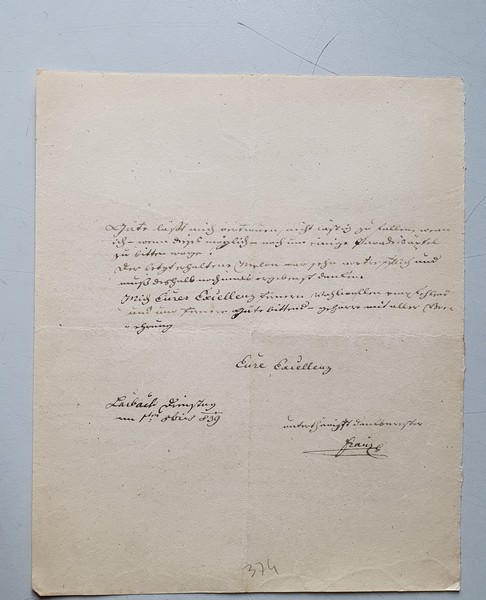 Güte läßt mich vertrauen, nicht lästig zu fallen, wenn
ich – wenn dieß möglich – noch um einige Paradiesäpfel
zu bitten wage.
Der letzt erhaltene Melon war sehr vortrefflich und
muß deshalb nochmals ergebenst danken.
Mich Eurer Excellenz fernern Wohlwollen empfehlend
und um fernere Güte bittend – geharre mit aller Ver-
ehrung
Eure Excellenz
Laibach Dienstag
am 1ten 8bris 839
unterthänigst dankbarster
Franz
374